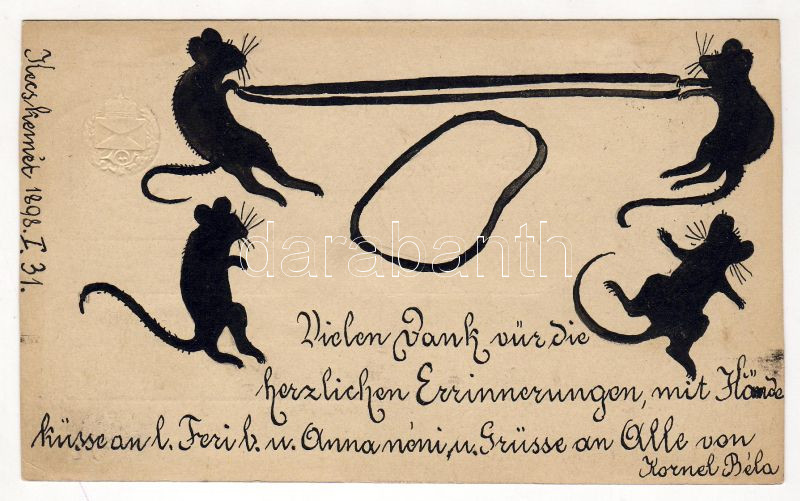 Kecskemét 1898. I. 31.
darabanth
Vielen Dank vür die
herzlichen Errinnerungen, mit Hände
küsse an l. Feri b. u. Anna néni, u. Grüsse an Alle von
Kornel Béla